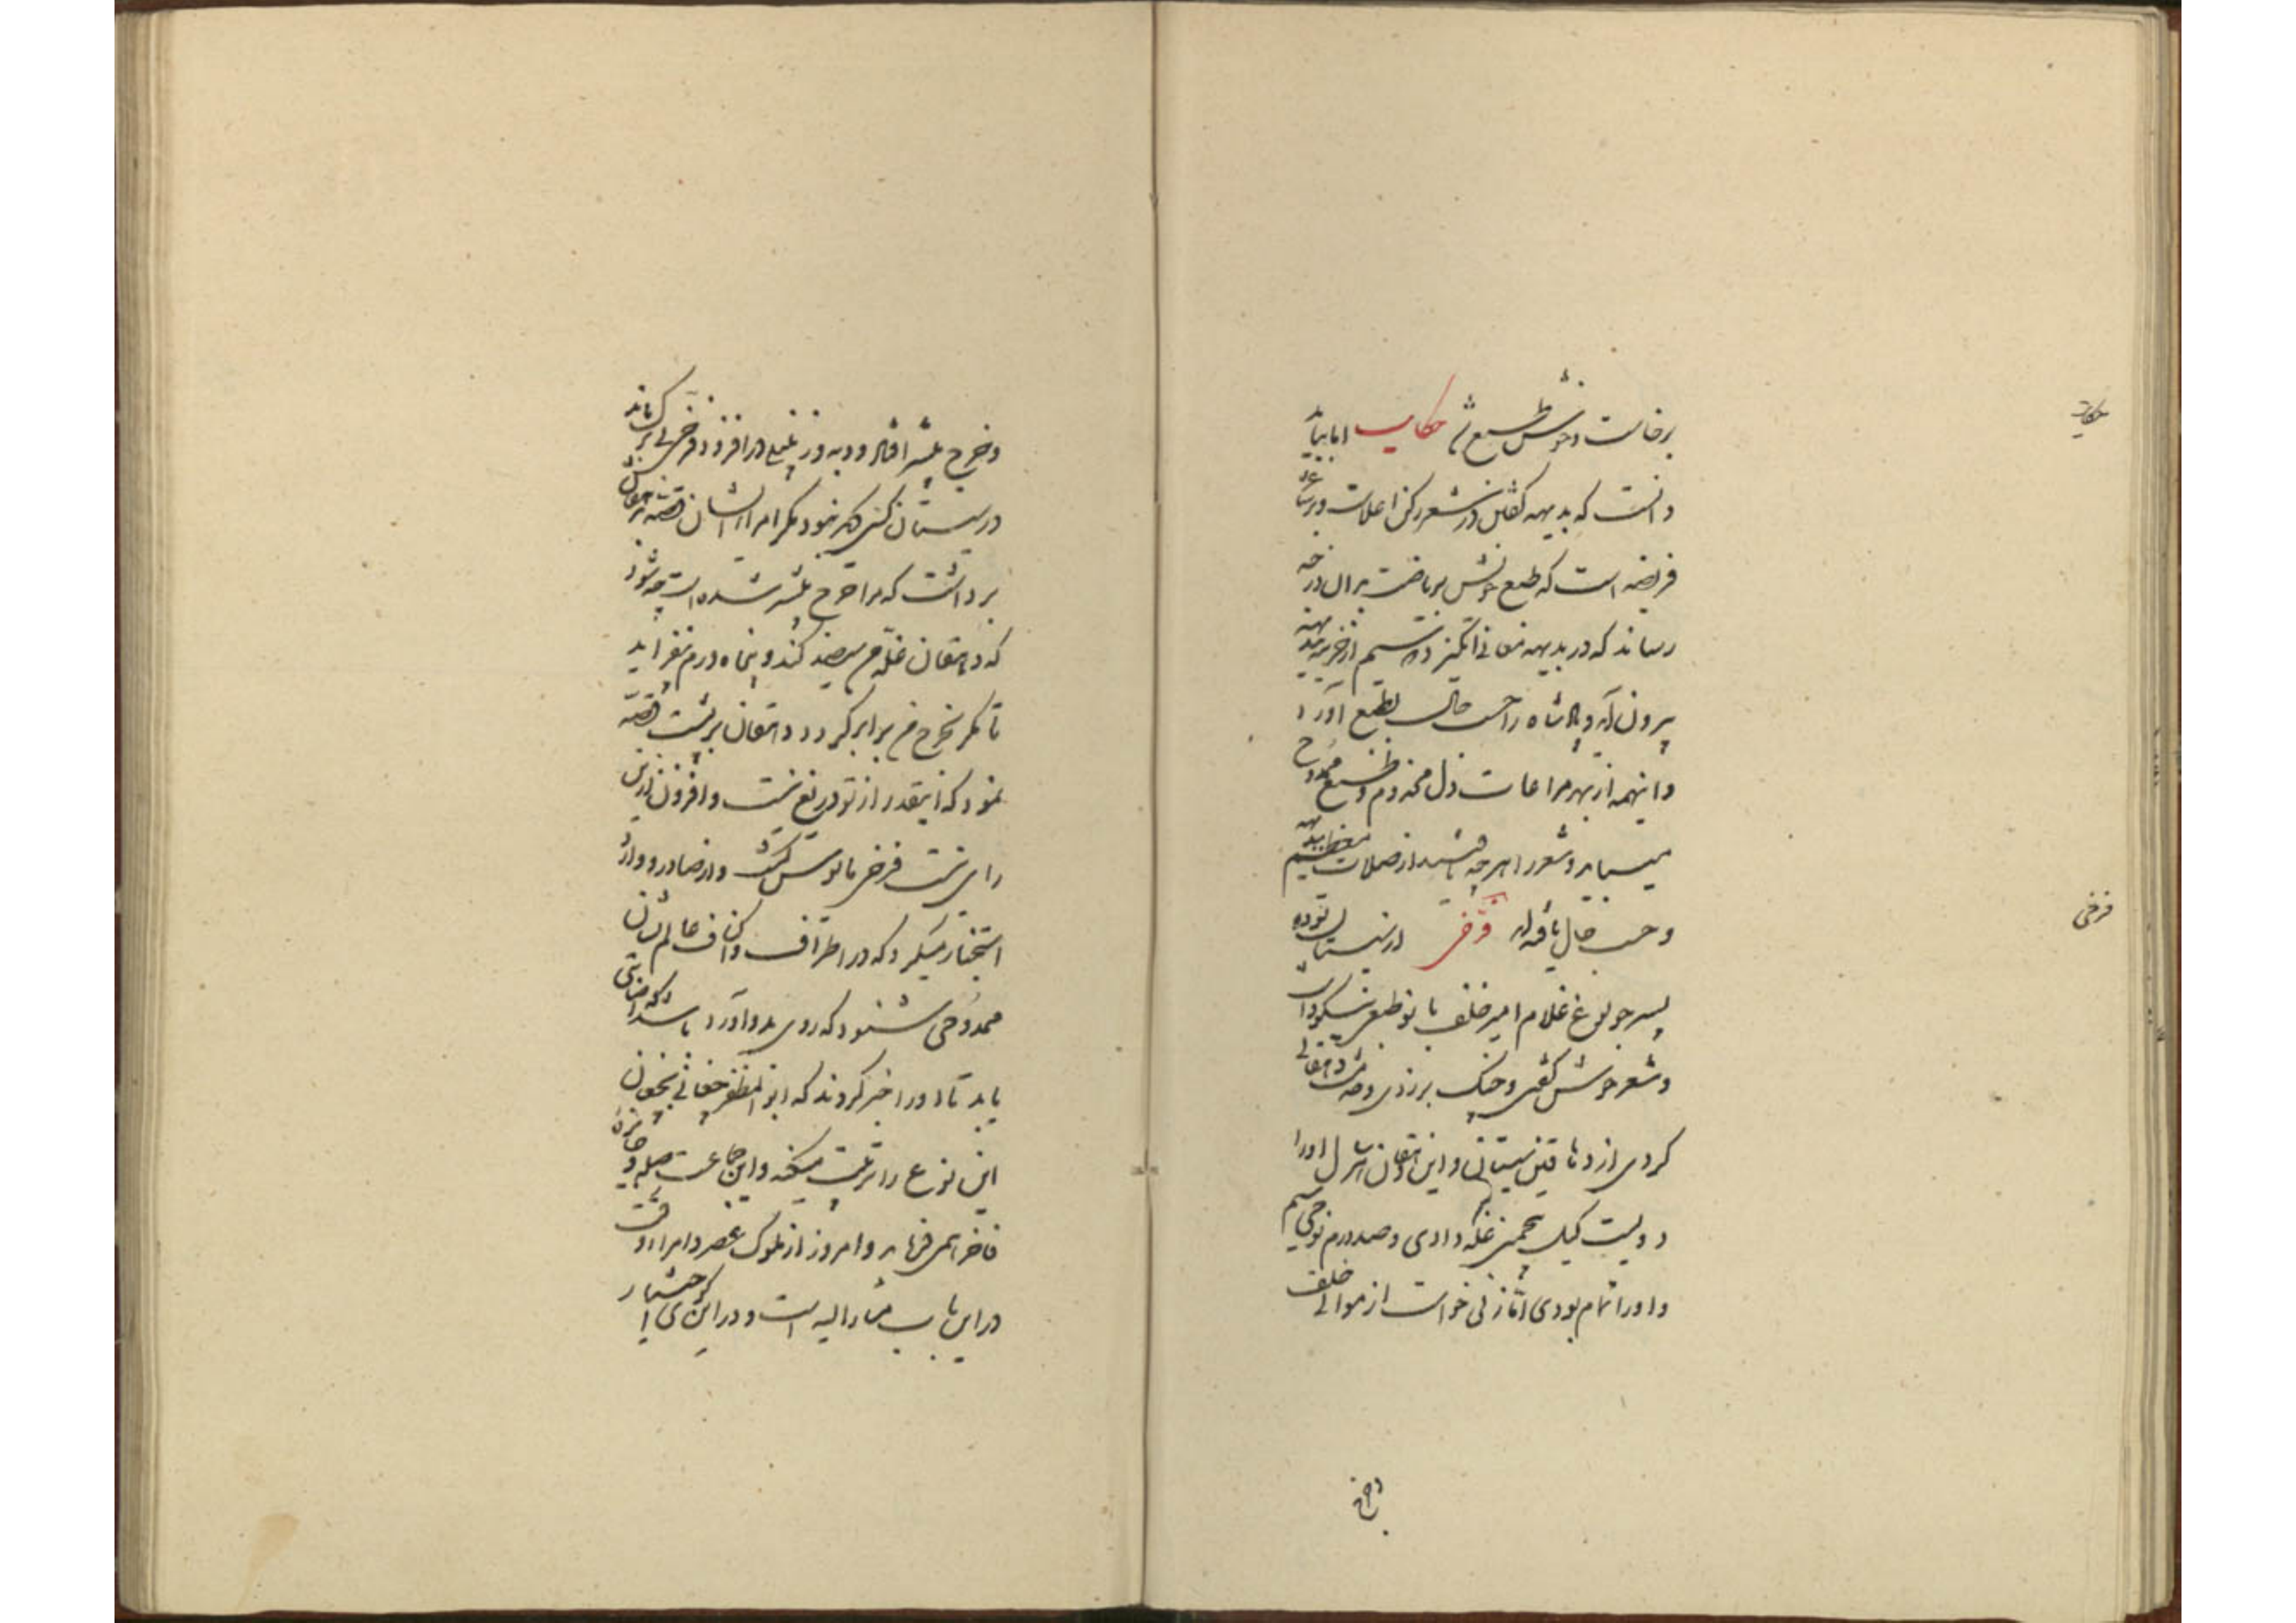 برخاست و خوش طبع شد حکایت اما بباید
دانست که بدیهه گفتن در شعر رکن اعلاست و بر شاعر
فریضه است که طبع خویش بریاضت بدان درجه
رساند که در بدیهه معانی انگیزد که سیم از خزینه بدیهه
بیرون آید و پادشاه را حسب حال بطبع آورد
و اینهمه از بهر مراعات دل مخدوم و طبع ممدوح
میباید و شعرا هر چه یافته‌اند از صلات معظم بدیهه
و حسب حال یافته‌اند فرخی از سیستان بوده
پسر جولوغ غلام امیر خلف بانو طبعی نیکو داشت
و شعر خوش گفتی و چنگ بر زدی و خدمت دهقانی
کردی از دهاقین سیستان و این دهقان هر سال او را
دویست کیل پنج منی غله دادی و صد درم سیم نوحی
و او را تمام بودی اما زنی خواست از موالی خلف
و خرج
حکایت
فرخی
و خرج بیشتر افتاد و دبه و زنبیل در افزود و فرخی بی برگ ماند
در سیستان کسی دیگر نبود مگر امراء ایشان قصه بدهقان
برداشت که مرا خرج بیشتر شده است چه شود
که دهقان غله من سیصد کند و پنجاه درم بفزاید
تا مگر بخرج من برابر گردد دهقان بر پشت قصه
نمود که اینقدر از تو دریغ نیست و افزون ازین
را روی نیست فرخی مأیوس گشت و از صادر و وارد
استخبار میکرد که در اطراف و اکناف عالم نشان
ممدوحی شنود که روی بدو آورد باشد که اصابتی
یابد تا او را خبر کردند که ابوالمظفر چغانی بچغانیان
این نوع را تربیت میکند و این جماعت را صله و جائزه
فاخر همی فرماید و امروز از ملوک عصر و امراء وقت
در این باب مشار الیه است و در این